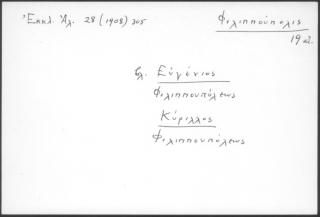 Ἐκκλ. Ἀλ. 28 (1908) 305
Φιλιππούπολις
19 αἰ.
βλ. Εὐγένιος
Φιλιππουπόλεως
Κύριλλος
Φιλιππουπόλεως